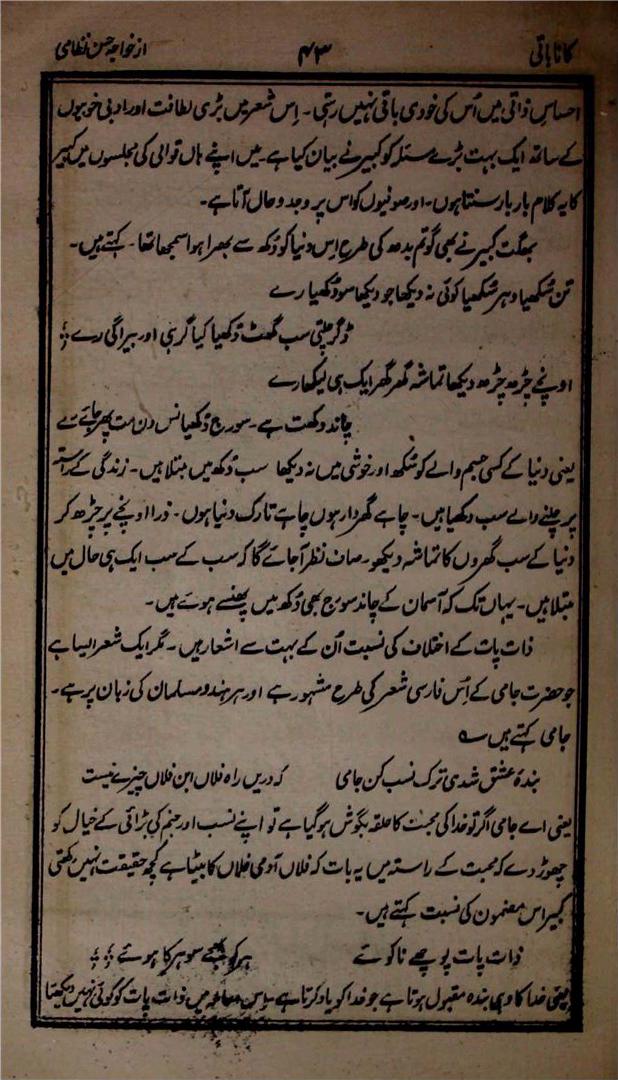 کانا باتی ۴۳ از خواجہ حسن نظامی
احساس ذاتی میں اُس کی خودی باقی نہیں رہتی۔ اِس شعر میں بڑی لطافت اور ادبی خوبیوں
کے ساتھ ایک بہت بڑے مسئلہ کو کبیر نے بیان کیا ہے۔ میں اپنے ہاں قوالی کی مجلسوں میں کبیر
کا یہ کلام بار بار سنتا ہوں۔ اور صوفیوں کو اس پر وجد و حال آتا ہے۔
بھگت کبیر نے بھی گوتم بدھ کی طرح اِس دنیا کو دُکھ سے بھرا ہوا سمجھا تھا۔ کہتے ہیں۔
تن سُکھیا و ہر سُکھیا کوئی نہ دیکھا جو دیکھا سو دُکھیا رے
ڈگر چلتی سب گھٹ دُکھیا کیا گرہی اور بیراگی رے
اونچے چڑھ چڑھ دیکھا تماشہ گھر گھر ایک ہی لیکھا رے
چاند دکھت ہے۔ سورج دُکھیا نس دن
یعنی دنیا کے کسی جسم والے کو سُکھ اور خوشی میں نہ دیکھا سب دُکھ میں مبتلا ہیں۔ زندگی کے راستے
پر چلنے والے سب دکھیا ہیں۔ چاہے گھردار ہوں چاہے تارک دنیا ہوں۔ ذرا اونچے پر چڑھ کر
دنیا کے سب گھروں کا تماشہ دیکھو۔ صاف نظر آجائے گا کہ سب کے سب ایک ہی حال میں
مبتلا ہیں۔ یہاں تک کہ آسمان کے چاند سورج بھی دُکھ میں پھنسے ہوئے ہیں۔
ذات پات کے اختلاف کی نسبت اُن کے بہت سے اشعار ہیں۔ مگر ایک شعر ایسا ہے
جو حضرت جامی کے اُس فارسی شعر کی طرح مشہور ہے اور ہر ہندو مسلمان کی زبان پر ہے۔
جامی کہتے ہیں ؎
بندۂ عشق شدی ترک نسب کن جامی کہ دریں راہ فلاں ابن فلاں چیزے نیست
یعنی اے جامی اگر تو خدا کی محبت کا حلقہ بگوش ہوگیا ہے تو اپنے نسب اور جنم کی بڑائی کے خیال کو
چھوڑ دے کہ محبت کے راستہ میں یہ بات کہ فلاں آدمی فلاں کا بیٹا ہے کچھ حقیقت نہیں رکھتی
کبیر اس مضمون کی نسبت کہتے ہیں۔
ذات پات پوچھے نا کوئے ہر کو بھجے سو ہر کا ہوئے
یعنی خدا کا وہی بندہ مقبول ہوتا ہے جو خدا کو یاد کرتا ہے۔ اس معاملہ میں ذات پات کو کوئی نہیں دیکھتا